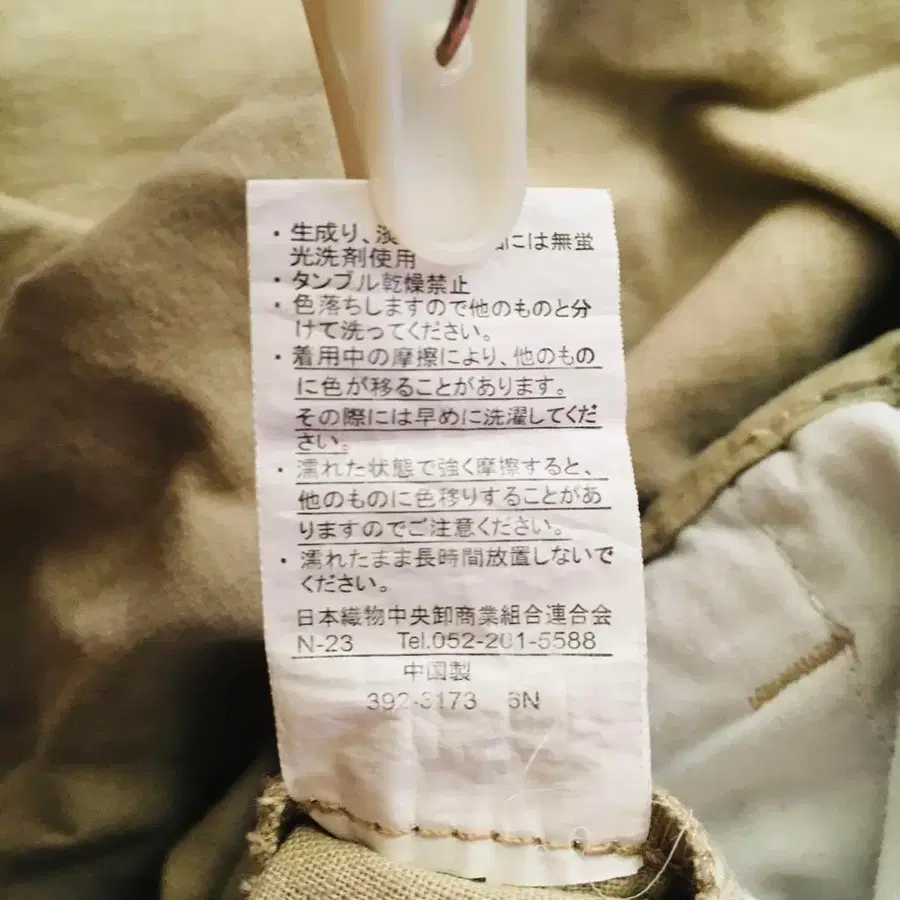 ・生成り、淡 には無蛍
光洗剤使用
・タンブル乾燥禁止
・色落ちしますので他のものと分
けて洗ってください。
・着用中の摩擦により、他のもの
に色が移ることがあります。
その際には早めに洗濯してくだ
さい。
・濡れた状態で強く摩擦すると、
他のものに色移りすることがあ
りますのでご注意ください。
・濡れたまま長時間放置しないで
ください。
日本織物中央卸商業組合連合会
N-23 Tel.052-201-5588
中国製
392-3173 6N